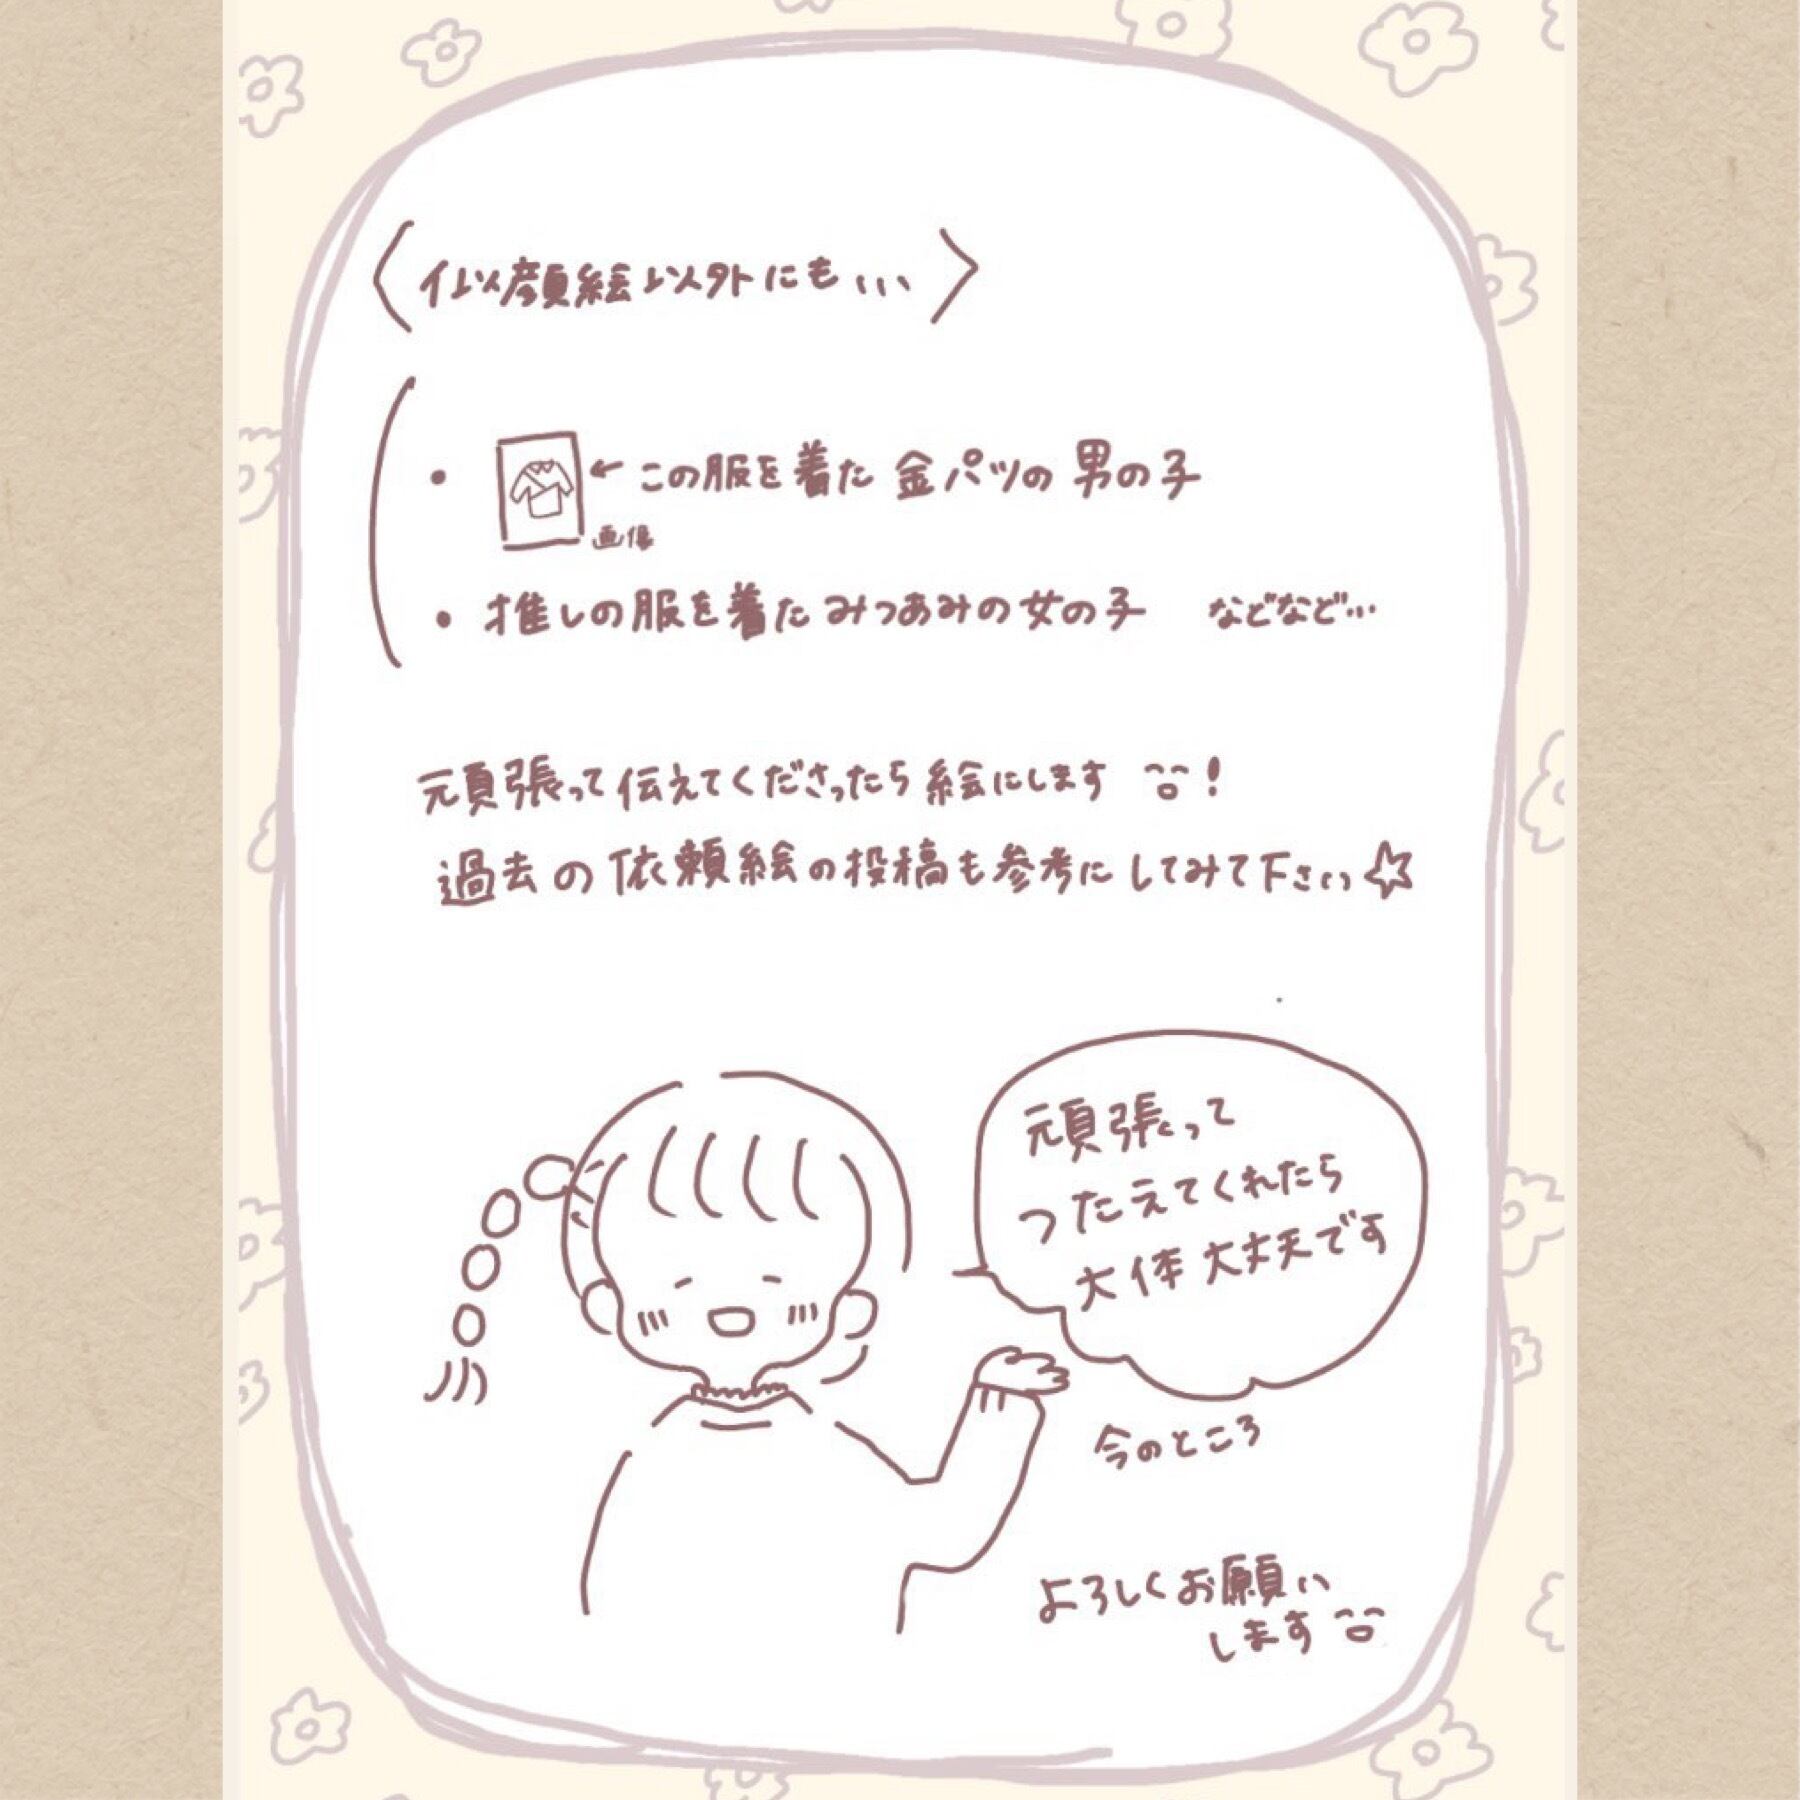 〈似顔絵以外にも...〉
・ ←この服を着た金パツの男の子
画像
・推しの服を着たみつあみの女の子 などなど...
頑張って伝えてくださったら絵にします!
過去の依頼絵の投稿も参考にしてみて下さい☆
頑張って
つたえてくれたら
大体大丈夫です
今のところ
よろしくお願い
します